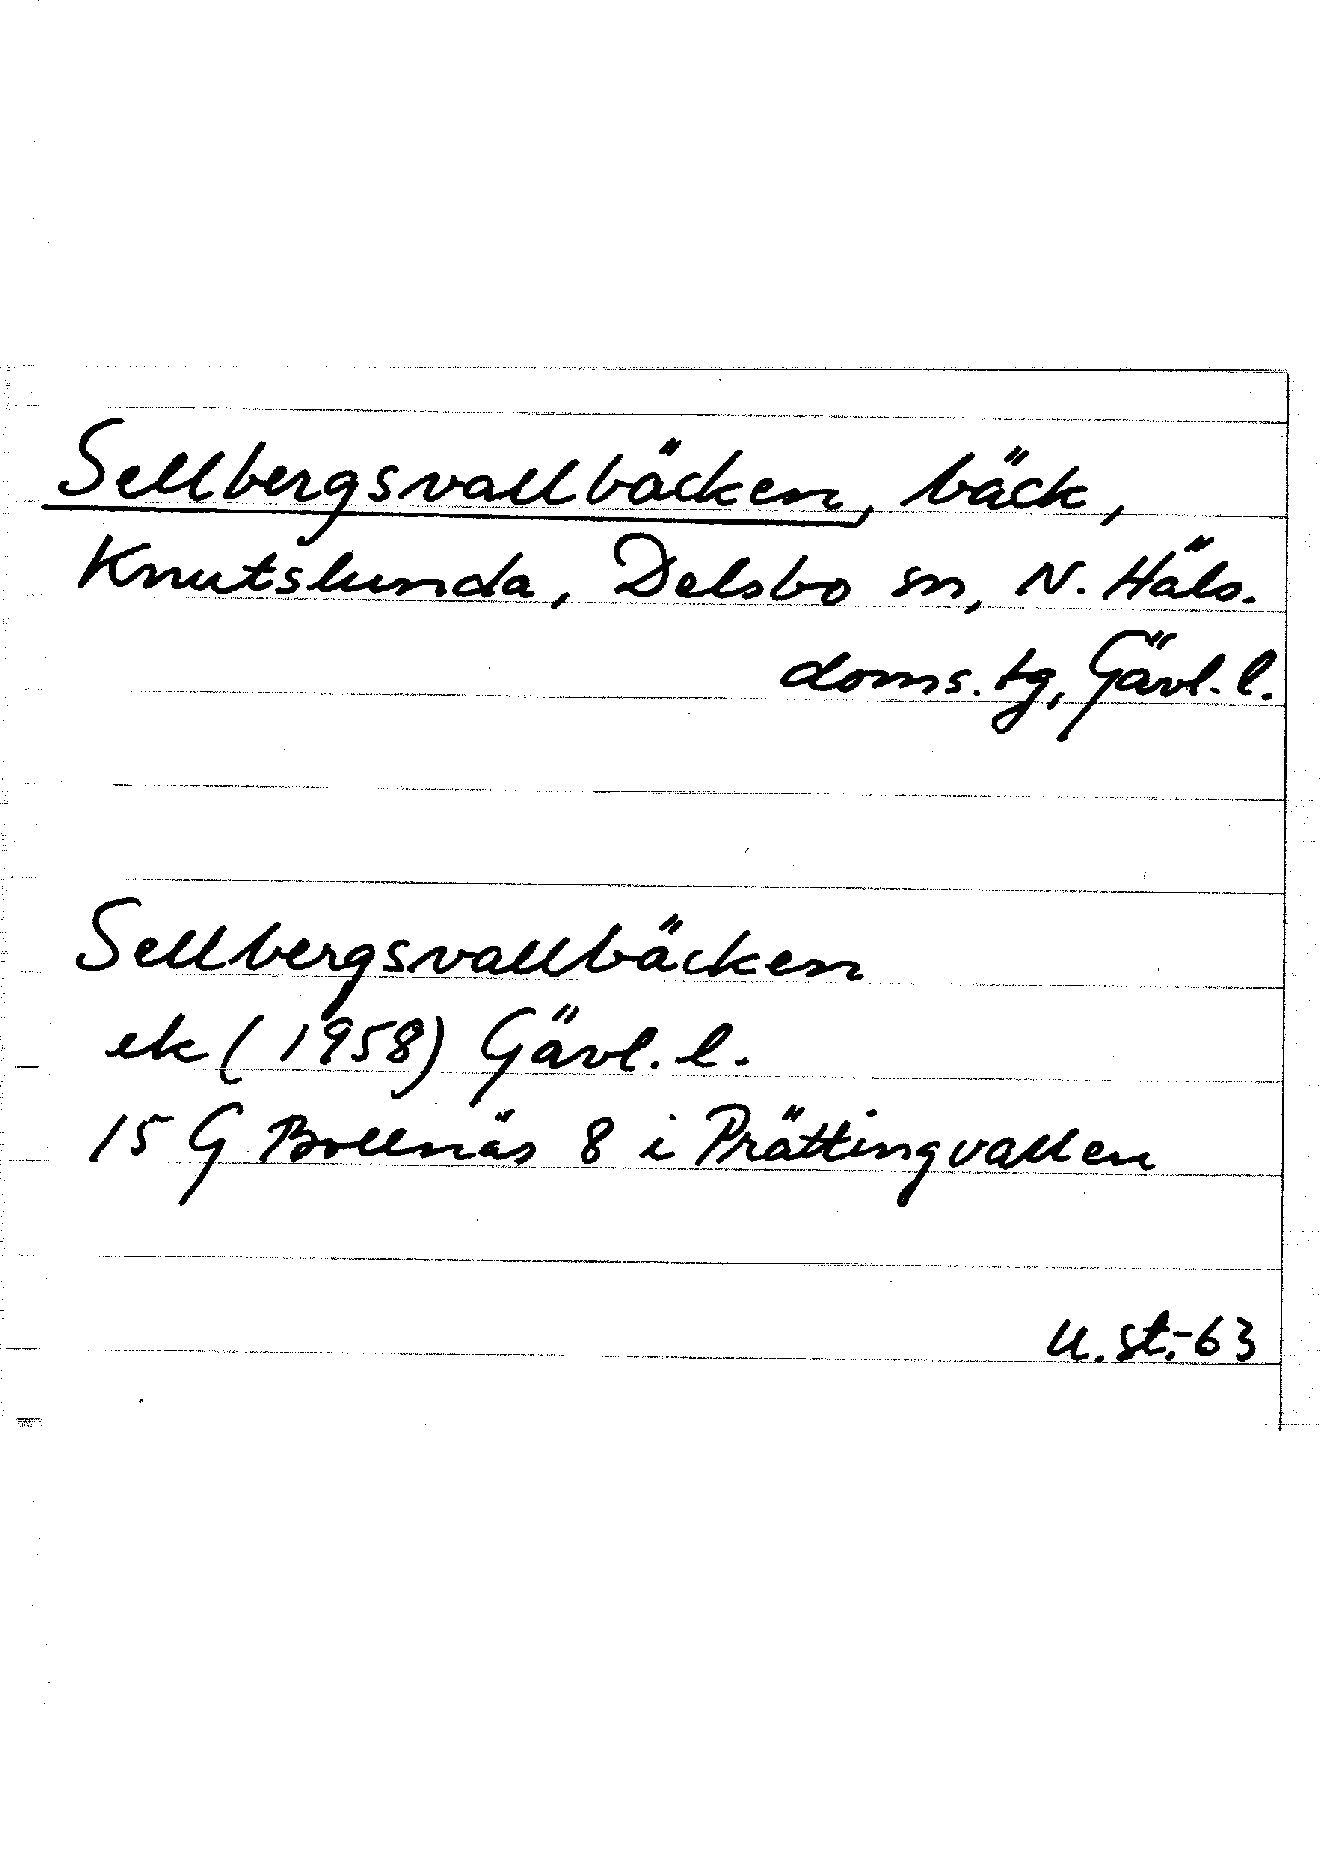 Sellbergsvallbäcken, bäck,
Knutslunda, Delsbo sn, N. Häls.
doms. tg, Gävl. l.
Sellbergsvallbäcken
ek (1958) Gävl. l.
15 G Bollnäs 8 i Prättingvallen
U. st.-63